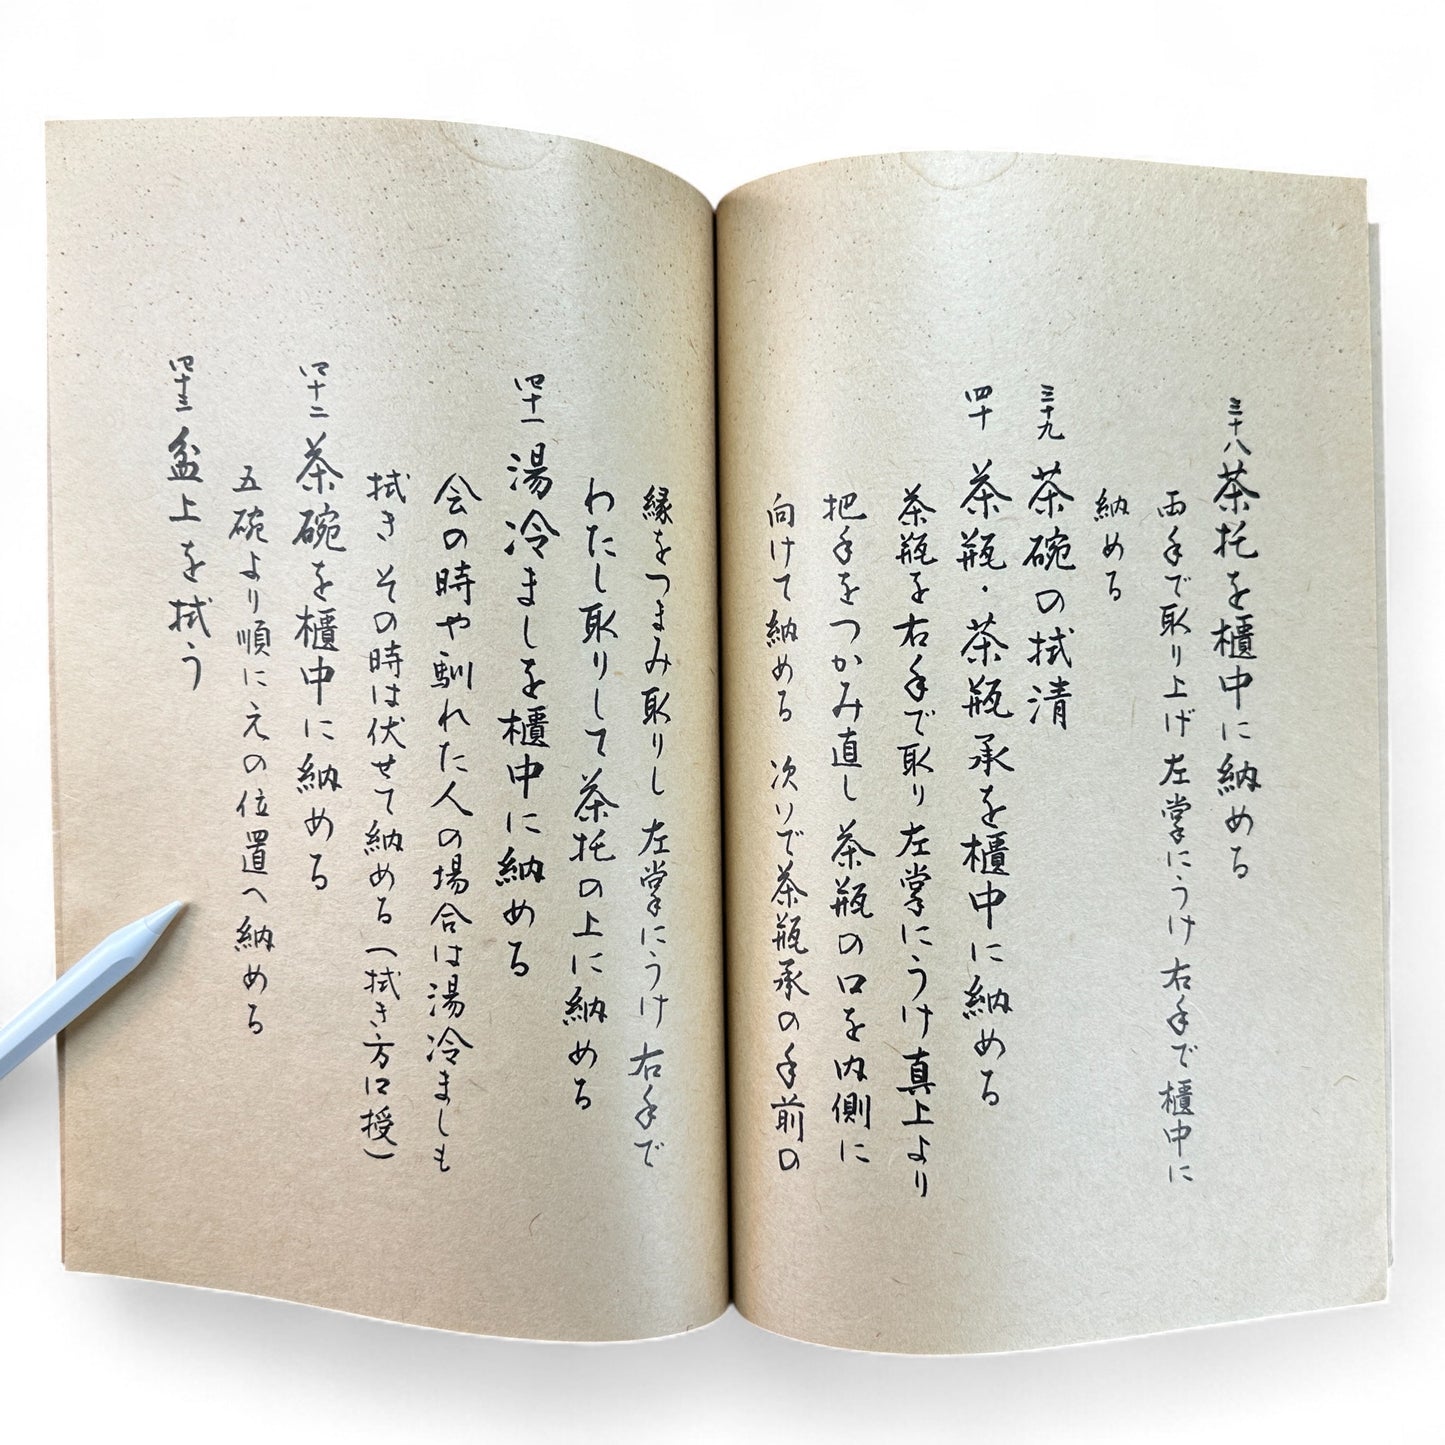 三十八 茶托を櫃中に納める
両手で取り上げ 左掌にうけ 右手で櫃中に
納める
三十九 茶碗の拭清
四十 茶瓶・茶瓶承を櫃中に納める
茶瓶を右手で取り左掌にうけ真上より
把手をつかみ直し 茶瓶の口を内側に
向けて納める 次いで茶瓶承の手前の
縁をつまみ取りし 左掌にうけ 右手で
わたし取りして茶托の上に納める
四十一 湯冷ましを櫃中に納める
会の時や馴れた人の場合は湯冷ましも
拭き その時は伏せて納める(拭き方口授)
四十二 茶碗を櫃中に納める
五碗より順に元の位置へ納める
四十三 盆上を拭う